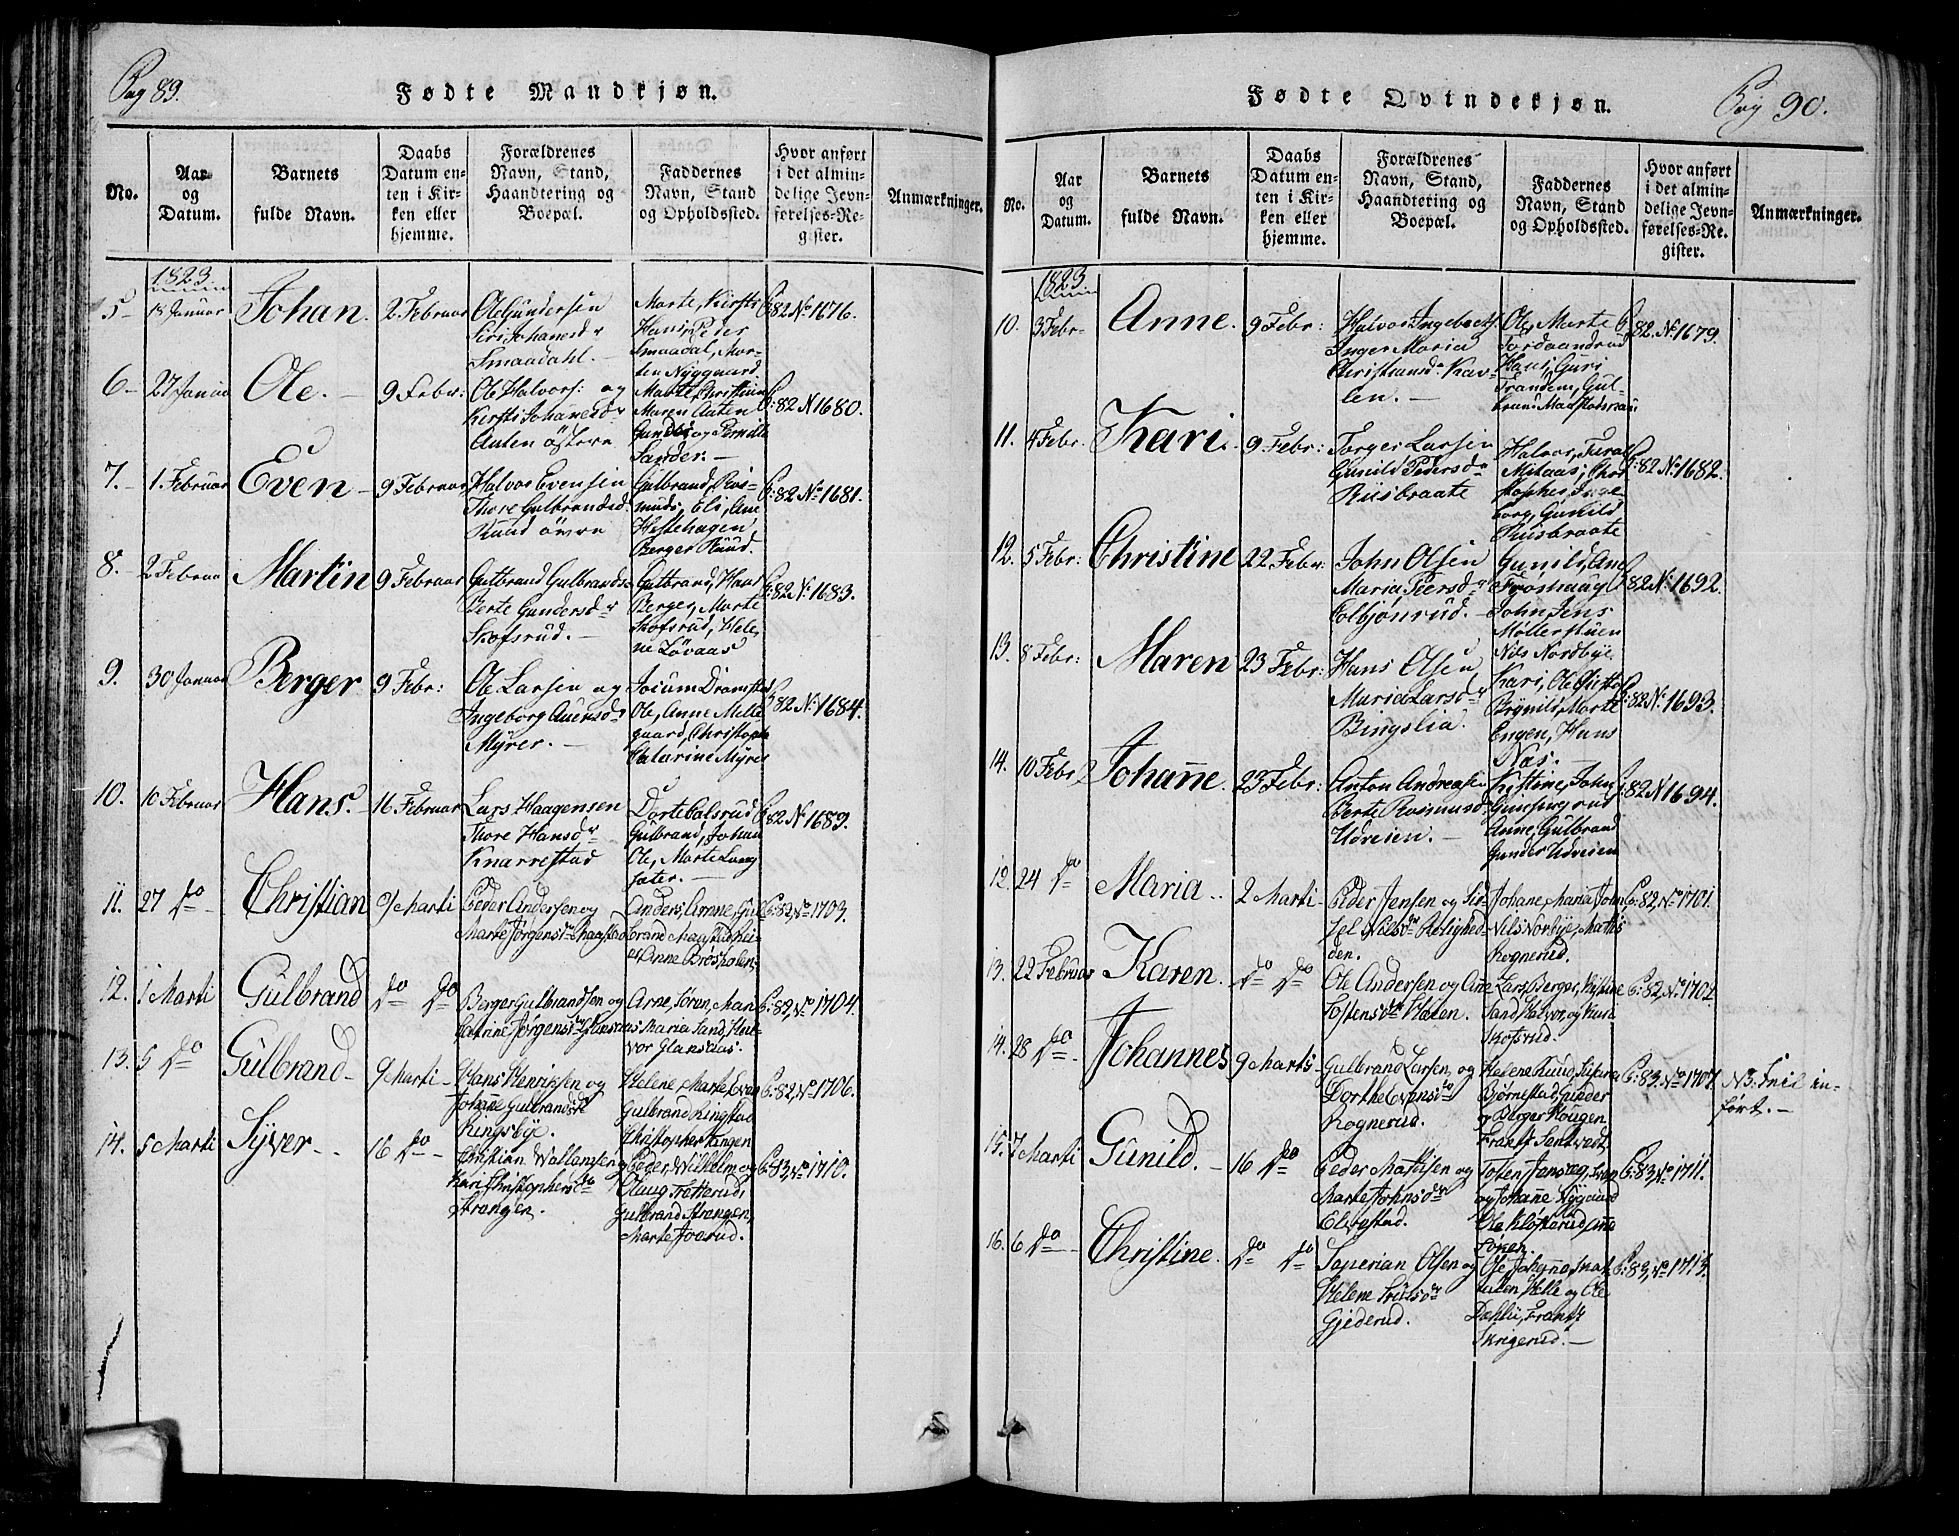 Pag 89.
Fødte Mandkjøn.
No.
Aar og Datum.
Barnets fulde Navn.
Daabs Datum enten i Kirken eller hjemme.
Forældrenes Navn, Stand, Haandtering og Boepæl.
Faddernes Navn, Stand og Opholdssted.
Hvor anført i det almindelige Jevnførelses-Register.
Anmærkninger.
1823
5 18 Januar Johan. 2 Februar
Ole Gundersen
Siri Johannesdr
Smaadahl.
Marte, Kirsti
Hans, Peder
Smaadal, Morten Nyggaard
82 No 1676.
6 27 Januar Ole. 9 Febr:
Ole Halvors: og
Kirsti Johannesdr
Auten östere
Marte, Christian
Maren Auten
Gunder og Pernille
Sander.
82 N 1680.
7. 1. Februar Even 9 Februar
Halvor Evensen
Thore Gulbrandsd.
Ruud övre
Gulbrand, Rasmund, Els, Ane
Hestehagen,
Berger Ruud.
82 No 1681.
8. 2 Februar Martin 9 Februar
Gulbrand Gulbrands:
Berte Gundersdr
Skofsrud.
Gulbrand, Hans
Berger, Marte
Skofsrud, Helene Lövaas
82 No 1683.
9. 30 Januar Berger 9 Febr:
Ole Larsen og
Ingeborg
Myrer.
Ole, Anne Mellegaard, Christopher
Catarine Myrer
82 No 1684.
10. 10 Februar Hans. 16 Februar
Lars Haagensen
Thore Hansdr
Knarrestad
Dorte Galsrud
Gulbrand, Johan
Ole, Marte Langsæter.
82 No 1689.
11. 27 do Christian 9 Marti
Peder Andersen og
Marte Jørgensdr
Anders, Anne, Gulbrand
P: 82, No 1703.
12. 1 Marti Gulbrand do do
Berger Gulbrandsen og
Catrine Jørgensdr Glansaas
Arne, Søren, Maren
Maria Sand, Halvor Glansaas.
P: 82, No 1704.
13. 5 do Gulbrand 9 Marti
Hans Henriksen og
Johanne Gulbrandsdr
Ringsbye.
Helene, Marte, Even
Gulbrand Ringstad
Christopher Tangen
P: 82, No 1706.
14. 5 Marti Syver 16 do
Christian Wallensen
Kari Christophersdr
Strangen.
Peder, Wilhelm og
Olaug Tretterud,
Gulbrand Strangen,
Marte Joerud.
P: 83, No 1710.
Fødte Qvindekjøn.
Pag 90.
No.
Aar og Datum.
Barnets fulde Navn.
Daabs Datum enten i Kirken eller hjemme.
Forældrenes Navn, Stand, Haandtering og Boepæl.
Faddernes Navn, Stand og Opholdssted.
Hvor anført i det almindelige Jevnførelses-Register.
Anmærkninger.
1823
10. 3 Febr Anne. 9 Febr:
Halvor Ingebretsen
Inger Maria
Christiansdr Kavlen.
Ole, Marte
Hans, Guri
Trandem, Gulbrand
82 No 1679.
11. 4 Febr. Kari. 9 Febr:
Torger Larsen
Gunild Pedersdr
Riisbraate
Halvor, Tural
Milaas, Christopher, Ingeborg, Gunild
Riisbraate
82 No 1682.
12. 5 Febr: Christine 22 Febr:
John Olsen
Maria Peersdr
Colbjönrud.
Gunild, Ane
Frøshaug
John, Jens
Møllerstuen
Nils Nordbye
82 No 1692.
13. 8 Febr: Maren 23 Febr:
Hans Olsen
Maria Larsdr
Bingslia.
Kari, Ole
Brynild, Marte
Engen, Hans
Næs.
82 No 1693.
14. 10 Febr Johanne. 23 Febr:
Anton Andreasen
Berte Rasmusdr
Udveien.
Kistine, John
Anne, Gulbrand
Gunder Udveien
82 N 1694.
12. 24 do Maria 2 Marti
Peder Jensen og
Nilsdr Roligheden.
Johane, Maria, John
Nils Norbye, Mathis
Rognerud.
P: 82, No 1701.
13. 22 Februar Karen. do do
Ole Andersen og Ane
Tostensdr
Lars, Berger, Kistine
Sand, Halvor, og
Skofsrud.
P: 82, No 1702.
14. 28 do Johannes 9 Marti
Gulbrand Larsen, og
Dorthe Evensdr
Rognerud.
Helene Ruud,
Bjørnestad, Gunder
og Berger Kougen,
P: 83, No 1707.
NB: Feil inført.
15. 7 Marti Gunild. 16 do
Peder Mathisen og
Marte Johnsdr
Elvestad.
og Johanne Nygaard
P: 83, No 1711.
16. 6 do Christine. do do
Severian Olsen og
Helene
Gjederud.
Ole, Johanne
Helle og Ole
Dahlie, Frants
Skrigerud.
P: 83, No 1713.